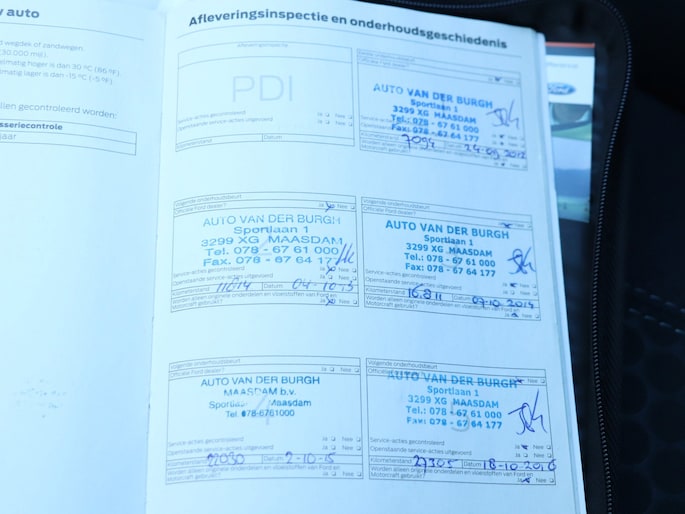 v auto
Afleveringsinspectie en onderhoudsgeschiedenis
d wegdek of zandwegen.
(30 000 mijl).
elmatig hoger is dan 30 °C (86 °F).
elmatig lager is dan -15 °C (-5 °F).
llen gecontroleerd worden:
sseriecontrole
jaar
Afleveringsinspectie
PDI
Service-acties gecontroleerd Ja Nee
Openstaande service-acties uitgevoerd
Ja Nee
Datum
Officiële Ford dealer? Ja Nee
AUTO VAN DER BURGH
Sportlaan 1
3299 XG MAASDAM
Tel.: 078 - 67 61 000
Fax: 078 - 67 64 177
Kilometerstand Datum 24-09-2012
Motorcraft gebruikt? Ja Nee
Volgende onderhoudsbeurt
Officiële Ford dealer? Ja Nee
AUTO VAN DER BURGH
Sportlaan 1
3299 XG MAASDAM
Tel. 078 - 67 61 000
Fax. 078 - 67 64 177
Service-acties gecontroleerd Ja Nee
Openstaande service-acties uitgevoerd Ja Nee
Kilometerstand 11014 Datum 04-10-13
Worden alleen originele onderdelen en vloeistoffen van Ford en
Motorcraft gebruikt? Ja Nee
Volgende onderhoudsbeurt
Officiële Ford dealer? Ja Nee
AUTO VAN DER BURGH
Sportlaan 1
3299 XG MAASDAM
Tel.: 078 - 67 61 000
Fax: 078 - 67 64 177
Service-acties gecontroleerd Ja Nee
Openstaande service-acties uitgevoerd Ja Nee
Kilometerstand 16.811 Datum 07-10-2014
Worden alleen originele onderdelen en vloeistoffen van Ford en
Motorcraft gebruikt? Ja Nee
Volgende onderhoudsbeurt
Officiële Ford dealer? Ja Nee
AUTO VAN DER BURGH
MAASDAM b.v.
Maasdam
Tel. 078-6761000
Service-acties gecontroleerd Ja Nee
Openstaande service-acties uitgevoerd
Ja Nee
Kilometerstand 22030 Datum 2-10-15
Worden alleen originele onderdelen en vloeistoffen van Ford en
Motorcraft gebruikt? Ja Nee
Volgende onderhoudsbeurt
AUTO VAN DER BURGH Nee
Sportlaan 1
3299 XG MAASDAM
Tel.: 078 - 67 61 000
Fax: 078 - 67 64 177
Service-acties gecontroleerd Ja Nee
Openstaande service-acties uitgevoerd
Ja Nee
Kilometerstand 27305 Datum 18-10-2016
Worden alleen originele onderdelen en vloeistoffen van Ford en
Motorcraft gebruikt? Ja Nee
Ford